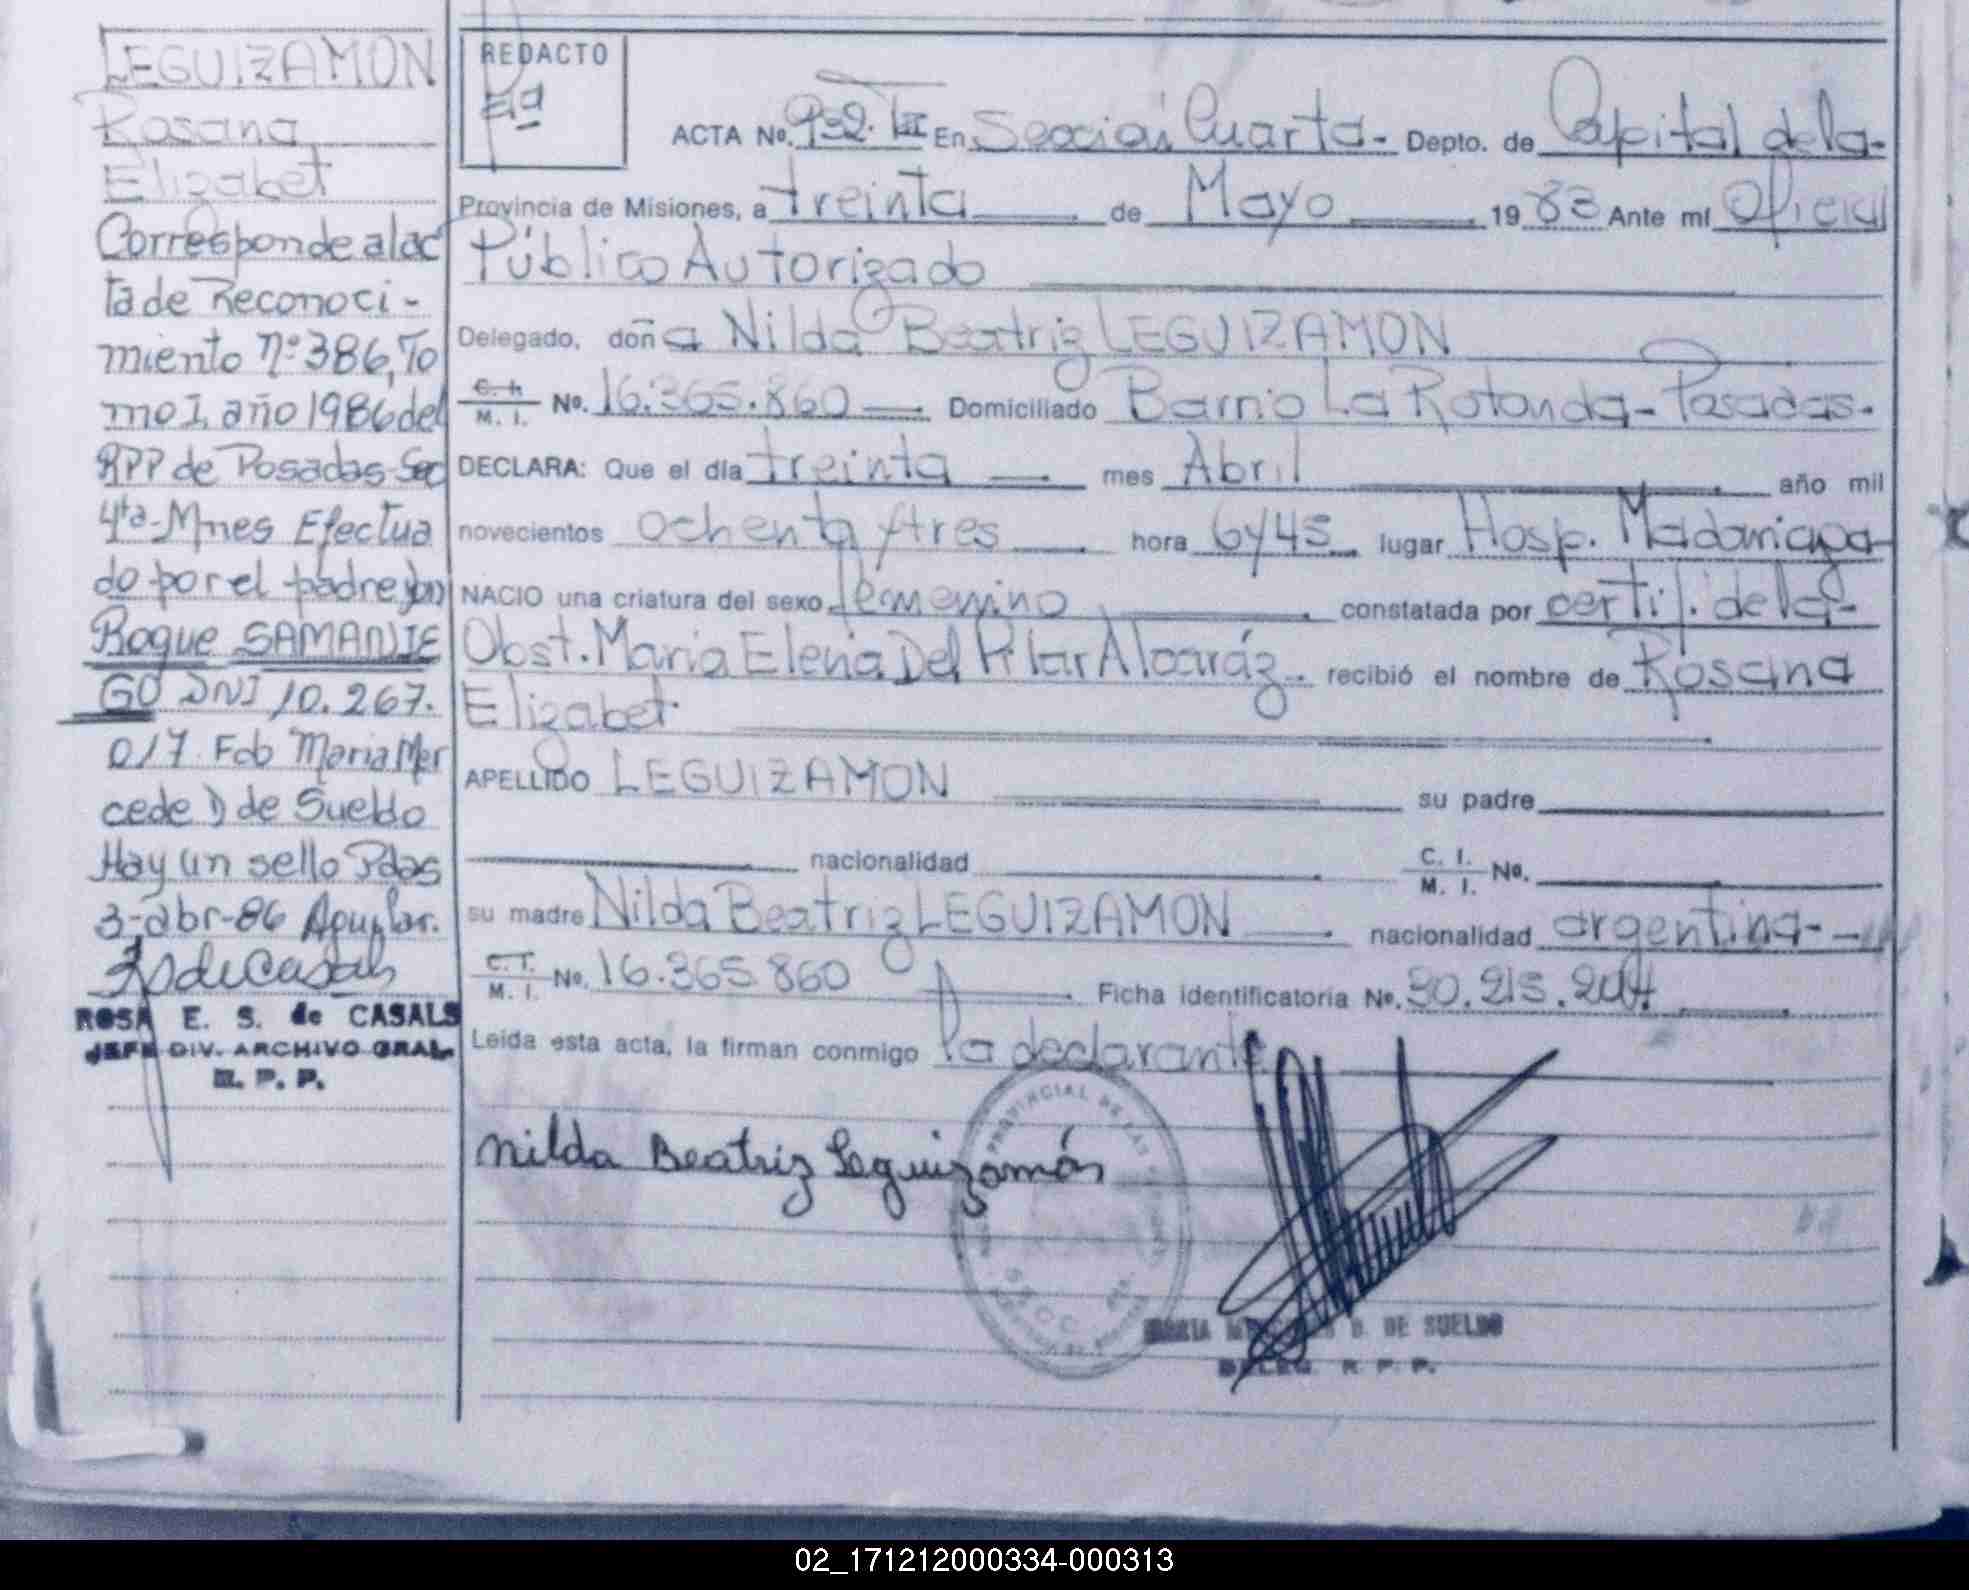 LEGUIZAMON
Rosana
Elizabet
Corresponde al ac
ta de Reconoci-
miento nº 386, To
mo I, año 1986 del
RPP de Posadas Sec
4ta-Mnes Efectua
do por el padre
Roque SAMANIE
GO DNI 10.267.
017. Fdo Maria Mer
cede D de Sueldo
Hay un sello Pdas
3-abr-86 Aguilar.
ROSA E. S. de CASALS
JEFE DIV. ARCHIVO GRAL.
R. P. P.
REDACTO
ACTA No. 932. III En Sección Cuarta- Depto. de Capital de la-
Provincia de Misiones, a treinta de Mayo 1983 Ante mí Oficial
Público Autorizado
Delegado, doña Nilda Beatriz LEGUIZAMON
C. I. M. I. No. 16.365.860 Domiciliado Barrio La Rotonda-Posadas.
DECLARA: Que el día treinta mes Abril año mil
novecientos ochenta y tres hora 6y45 lugar Hosp. Madariaga-
NACIO una criatura del sexo femenino constatada por certif. de la-
Obst. Maria Elena Del Pilar Alcaráz recibió el nombre de Rosana
Elizabet
APELLIDO LEGUIZAMON su padre
nacionalidad C. I. M. I. No.
su madre Nilda Beatriz LEGUIZAMON nacionalidad argentina--
C. I. M. I. No. 16.365 860 Ficha identificatoria No. 30.215.204
Leida esta acta, la firman conmigo la declarante
Nilda Beatriz Leguizamón
PROVINCIAL DE LAS
MARIA MERCEDES D. DE SUELDO
DELEG. R. P. P.
02_171212000334-000313